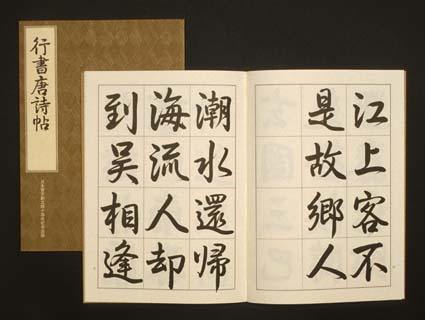 行書唐詩帖
江上客不
是故鄉人
潮水還歸
海流人却
到吴相逢